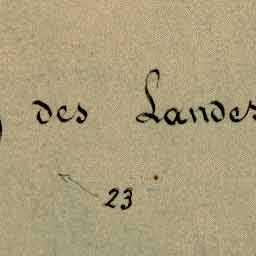 des Landes
23